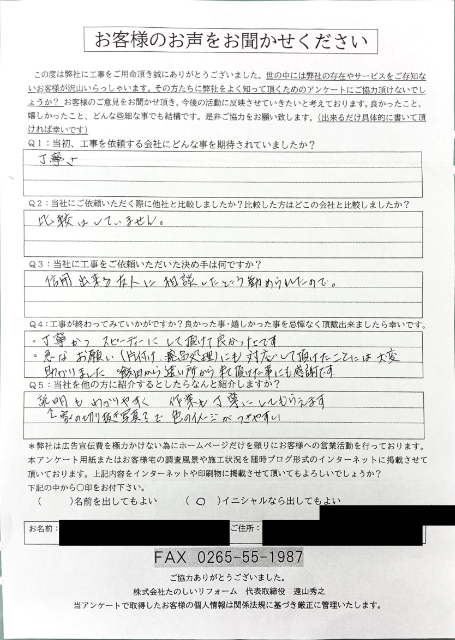 お客様のお声をお聞かせください
この度は弊社に工事をご用命頂き誠にありがとうございました。世の中には弊社の存在やサービスをご存知な
いお客様が沢山いらっしゃいます。その方たちに弊社をよく知って頂くためのアンケートにご協力頂けないでし
ょうか? お客様のご意見をお聞かせ頂き、今後の活動に反映させていきたいと考えております。良かったこと、
嬉しかったこと、どんな些細な事でも結構です。是非ご協力をお願い致します。(出来るだけ具体的に書いて頂
ければ幸いです)
Q1:当初、工事を依頼する会社にどんな事を期待されていましたか?
丁寧さ
Q2:当社にご依頼いただく際に他社と比較しましたか?比較した方はどこの会社と比較しましたか?
比較はしていません。
Q3:当社に工事をご依頼いただいた決め手は何ですか?
信用出来る友人に相談したところ勧められたので。
Q4:工事が終わってみていかがですか?良かった事・嬉しかった事を忌憚なく頂戴出来ましたら幸いです。
・丁寧かつスピーディーにして頂けて良かったです
・急なお願い(片付け、廃品処理)にも対応して頂けたことには大変
助かりました 飯田から遠い所から来て頂けた事にも感謝です
Q5:当社を他の方に紹介するとしたらなんと紹介しますか?
説明もわかりやすく 作業も丁寧にしてもらえます
家の切り抜き写真で色のイメージがつきやすい
*弊社は広告宣伝費を極力かけない為にホームページだけを頼りにお客様への営業活動を行っております。
本アンケート用紙またはお客様宅の調査風景や施工状況を随時ブログ形式のインターネットに掲載させて
頂いております。上記内容をインターネットや印刷物に掲載させて頂いてもよろしいでしょうか?
下記の中から〇印をお付下さい。
( )名前を出してもよい (〇)イニシャルなら出してもよい
お名前: ご住所:
FAX 0265-55-1987
ご協力ありがとうございました。
株式会社たのしいリフォーム 代表取締役 遠山秀之
当アンケートで取得したお客様の個人情報は関係法規に基づき厳正に管理いたします。